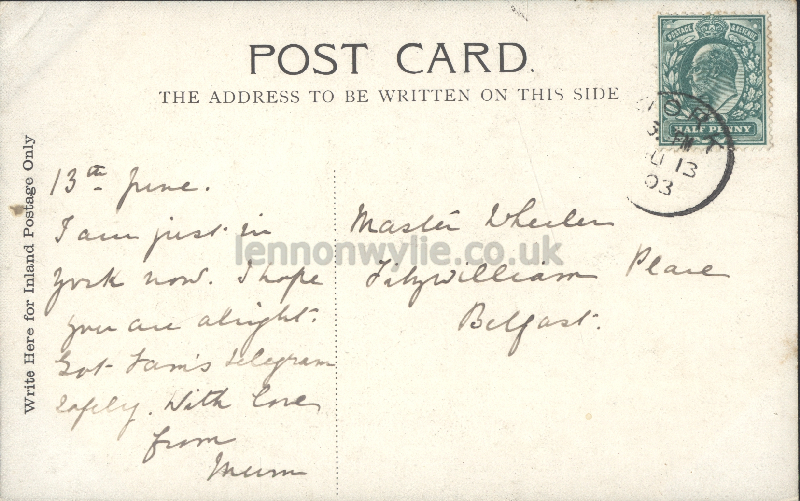 POST CARD.
THE ADDRESS TO BE WRITTEN ON THIS SIDE
POSTAGE & REVENUE
HALF PENNY
YORK
3.
JU 13
03
Write Here for Inland Postage Only
13th June.
I am just in
York now. I hope
you are alright.
Got Sam's telegram
safely. With love
from
Mum
Master Wheeler
Fitzwilliam Place
Belfast.
lennonwylie.co.uk